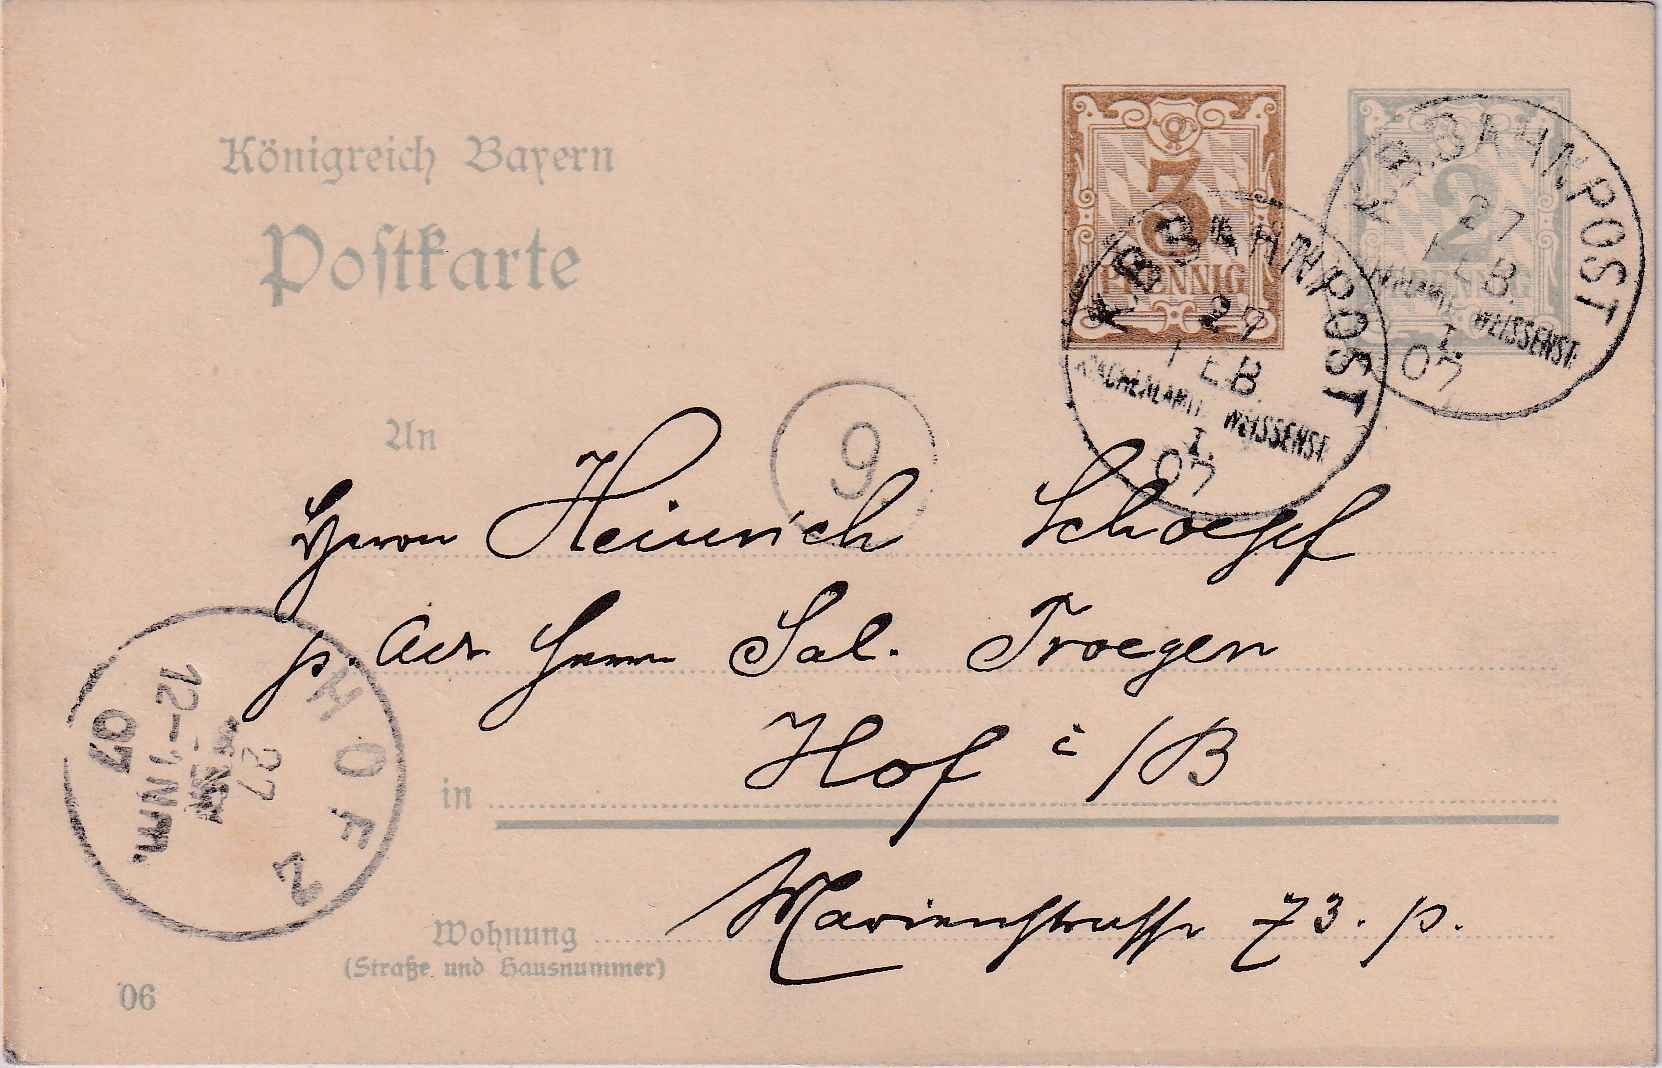 Königreich Bayern
Postkarte
3
PFENNIG
2
PFENNIG
K.B.BAHNPOST
27
FEB.
KIRCHENLAMTZ. WEISSENST.
I.
07
K.B.BAHNPOST
27
FEB.
KIRCHENLAMTZ. WEISSENST.
I.
07
9
An
Herrn Heinrich Schoepf
p. Adr. Herrn Sal. Troegen
in Hof i/B
Marienstrasse 73. p.
HOF 2
27
12-1NM.
07
Wohnung
(Straße und Hausnummer)
06